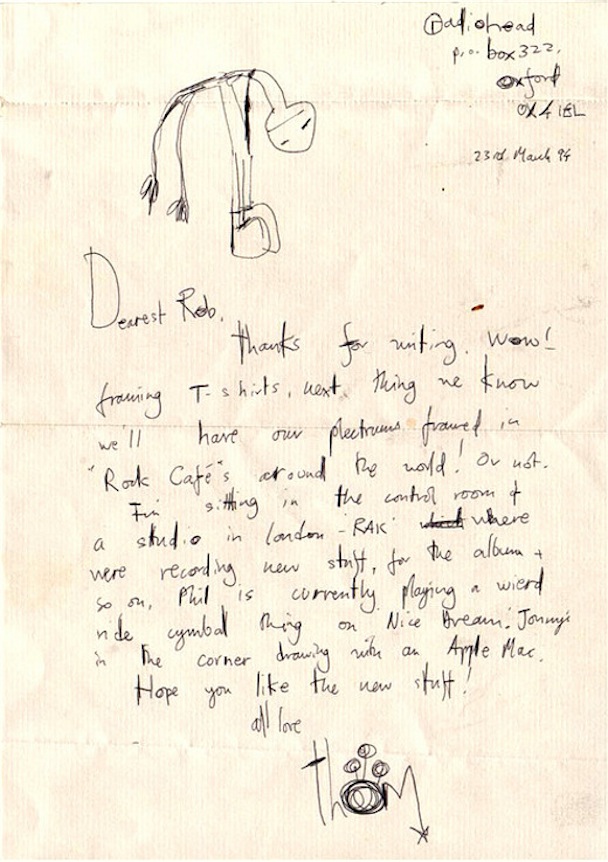 Radiohead
p.o. box 322,
Oxford
OX4 1EL
23rd March 94
Dearest Rob,
thanks for writing. Wow!
framing T-shirts, next thing we know
we'll have our plectrums framed in
"Rock Café"s around the world! Or not.
I'm sitting in the control room of
a studio in london - RAK' which where
were recording new stuff, for the album +
so on, Phil is currently playing a wierd
ride cymbal thing on 'Nice Dream'. Jonny's
in the corner drawing with an Apple Mac.
Hope you like the new stuff!
all love
thom